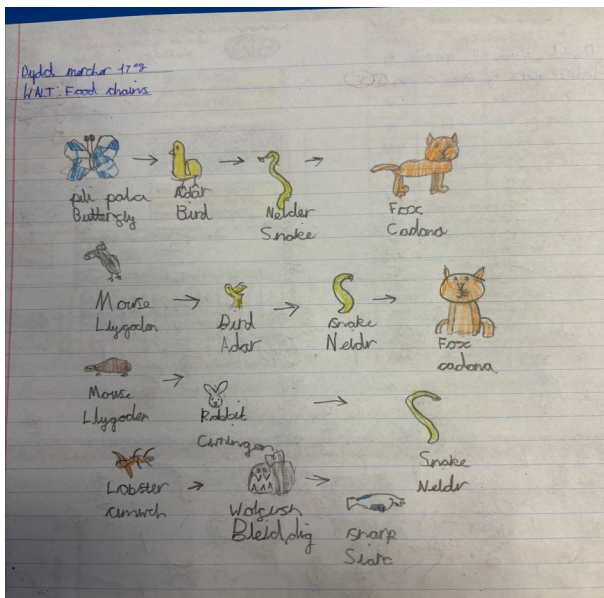 Dydd merchor 17eg
WALT: Food chains
pili pala
Butterfly
Adar
Bird
Neldr
Snake
Fox
Cadona
Mouse
Llygoden
Bird
Adar
snake
Neldr
Fox
cadona
Mouse
Llygoden
Rabbit
Cwningen
Snake
Neldr
Lobster
cimwch
Wolfish
Bleiddig
Siarc